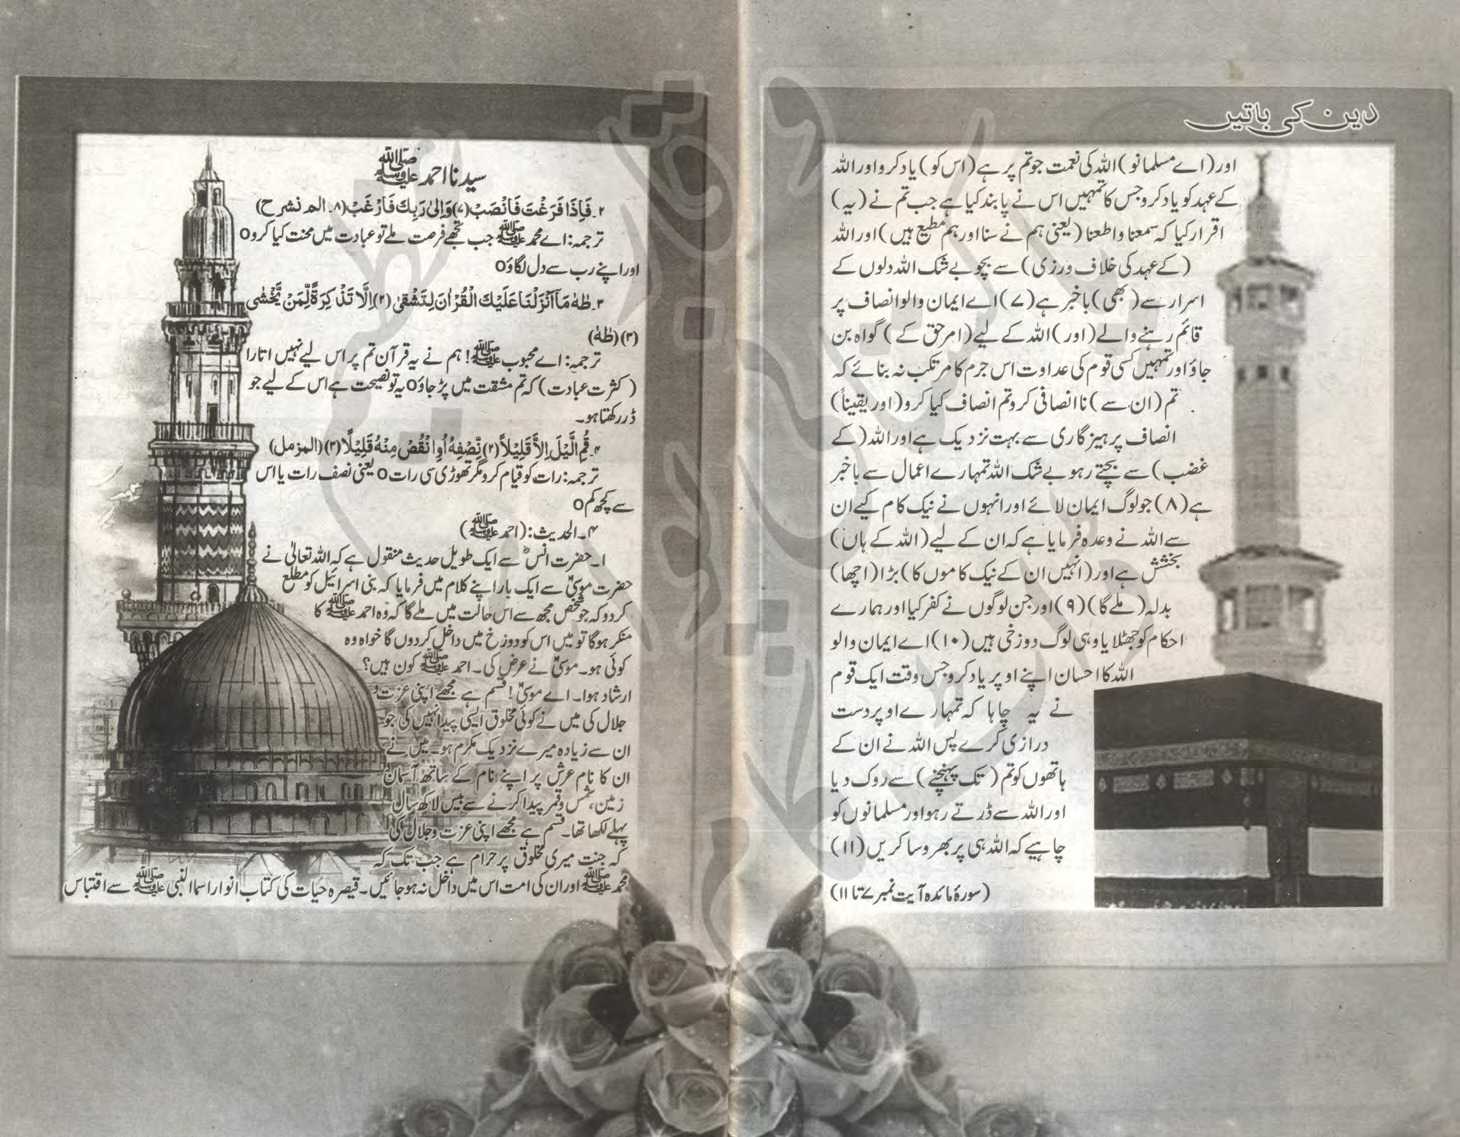 دین کی باتیں
اور (اے مسلمانو) اللہ کی نعمت جو تم پر ہے (اس کو) یاد کرو اور اللہ
کے عہد کو یاد کرو جس کا تمہیں اس نے پابند کیا ہے جب تم نے (یہ)
اقرار کیا کہ سمعنا واطعنا (یعنی ہم نے سنا اور ہم مطیع ہیں) اور اللہ
(کے عہد کی خلاف ورزی) سے بچو بے شک اللہ دلوں کے
اسرار سے (بھی) باخبر ہے (۷) اے ایمان والو انصاف پر
قائم رہنے والے (اور) اللہ کے لیے (امر حق کے) گواہ بن
جاؤ اور تمہیں کسی قوم کی عداوت اس جرم کا مرتکب نہ بنائے کہ
تم (ان سے) ناانصافی کرو تم انصاف کیا کرو (اور یقیناً)
انصاف پرہیزگاری سے بہت نزدیک ہے اور اللہ (کے
غضب) سے بچتے رہو بے شک اللہ تمہارے اعمال سے باخبر
ہے (۸) جو لوگ ایمان لائے اور انہوں نے نیک کام کیے ان
سے اللہ نے وعدہ فرمایا ہے کہ ان کے لیے (اللہ کے ہاں)
بخشش ہے اور (انہیں ان کے نیک کاموں کا) بڑا (اچھا)
بدلہ (ملے گا) (۹) اور جن لوگوں نے کفر کیا اور ہمارے
احکام کو جھٹلایا وہی لوگ دوزخی ہیں (۱۰) اے ایمان والو
اللہ کا احسان اپنے اوپر یاد کرو جس وقت ایک قوم
نے یہ چاہا کہ تمہارے اوپر دست
درازی کرے پس اللہ نے ان کے
ہاتھوں کو تم (تک پہنچنے) سے روک دیا
اور اللہ سے ڈرتے رہو اور مسلمانوں کو
چاہیے کہ اللہ ہی پر بھروسا کریں (۱۱)
(سورۂ مائدہ آیت نمبر ۷ تا ۱۱)
سیدنا احمد ﷺ
۲۔ فَاِذَا فَرَغْتَ فَانْصَبْ (۷) وَاِلیٰ رَبِّكَ فَارْغَبْ (۸۔ الم نشرح)
ترجمہ: اے محمد ﷺ جب تجھے فرصت ملے تو عبادت میں محنت کیا کرو o
اور اپنے رب سے دل لگاؤ o
۳۔ طٰهٰ مَا اَنْزَلْنَا عَلَيْكَ الْقُرْاٰنَ لِتَشْقىٰ (۲) اِلَّا تَذْكِرَةً لِّمَنْ يَّخْشىٰ
(۳) (طٰهٰ)
ترجمہ: اے محبوب ﷺ! ہم نے یہ قرآن تم پر اس لیے نہیں اتارا
(کثرت عبادت) کہ تم مشقت میں پڑ جاؤ o یہ تو نصیحت ہے اس کے لیے جو
ڈر رکھتا ہو۔
۴۔ قُمِ الَّيْلَ اِلاَّ قَلِيْلاً (۲) نِّصْفِهٗ اَوِ انْقُصْ مِنْهُ قَلِيْلًا (۳) (المزمل)
ترجمہ: رات کو قیام کرو مگر تھوڑی سی رات o یعنی نصف رات یا اس
سے کچھ کم o
۴۔ الحدیث: (احمد ﷺ)
۱۔ حضرت انسؓ سے ایک طویل حدیث منقول ہے کہ اللہ تعالیٰ نے
حضرت موسیٰؑ سے ایک بار اپنے کلام میں فرمایا کہ بنی اسرائیل کو مطلع
کردو کہ جو شخص مجھ سے اس حالت میں ملے گا کہ وہ احمد ﷺ کا
منکر ہوگا تو میں اس کو دوزخ میں داخل کردوں گا خواہ وہ
کوئی ہو۔ موسیٰؑ نے عرض کی۔ احمد ﷺ کون ہیں؟
ارشاد ہوا۔ اے موسیٰؑ! قسم ہے مجھے اپنی عزت و
جلال کی میں نے کوئی مخلوق ایسی پیدا نہیں کی جو
ان سے زیادہ میرے نزدیک مکرم ہو۔ میں نے
ان کا نام عرش پر اپنے نام کے ساتھ آسمان
زمین، شمس و قمر پیدا کرنے سے بیس لاکھ سال
پہلے لکھا تھا۔ قسم ہے مجھے اپنی عزت و جلال کی
کہ جنت میری مخلوق پر حرام ہے جب تک کہ
محمد ﷺ اور ان کی امت اس میں داخل نہ ہو جائیں۔ قیصرہ حیات کی کتاب انوار اسما النبی ﷺ سے اقتباس